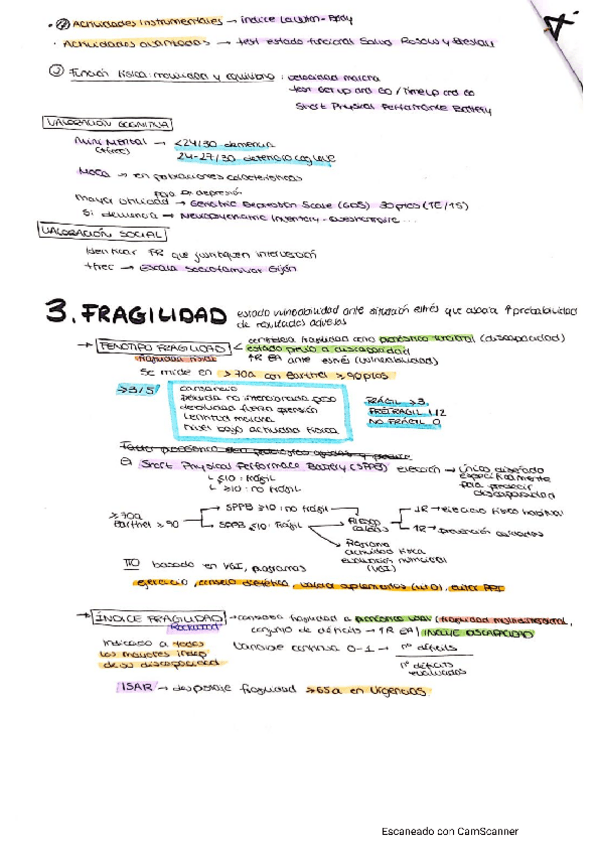 • Actividades Instrumentales → índice Lawton-Brody
• Actividades avanzadas → test estado funcional Salud Rosow y Breslau
② Función física: movilidad y equilibrio: velocidad marcha
test Get up and Go / Timed up and Go
Short Physical Performance Battery
VALORACIÓN COGNITIVA
Mini Mental → <24/30 demencia
24-27/30 deterioro cog leve
MOCA → en poblaciones características
para dx depresión
Mayor utilidad → Geriatric Depression Scale (GDS) 30 ptos (TE/15)
Si demencia →
VALORACIÓN SOCIAL
Identificar FR que justifiquen intervención
+frec → Escala Sociofamiliar Gijón
3. FRAGILIDAD estado vulnerabilidad ante situación estrés que asocia ↑ probabilidad
de resultados adversos
→ FENOTIPO FRAGILIDAD < considera fragilidad como (discapacidad)
estado previo a discapacidad
fragilidad física ↑R EA ante estrés (vulnerabilidad)
Se mide en >70a con Barthel ≥90 ptos
≥3/5 cansancio
pérdida no intencionada peso
debilidad fuerza prensión
lentitud marcha
nivel bajo actividad física
FRÁGIL ≥3
PREFRÁGIL 1/2
NO FRÁGIL 0
Short Physical Performance Battery (SPPB) elección → único diseñado
específicamente
para predecir
discapacidad
↳ ≤10: frágil
↳ ≥10: no frágil
≥70a
Barthel ≥90
SPPB ≥10: no frágil
SPPB ≤10: frágil
Riesgo
caídas
↓R → ejercicio físico habitual
↑R → prevención caídas
Programa
actividad física
evaluación nutricional
(VGI)
TTO basado en VGI, programas
ejercicio, consejo dietético, valorar suplementos (vit D), evitar PPI
→ ÍNDICE FRAGILIDAD → considera fragilidad a (fragilidad multidimensional,
Rockwood conjunto de déficits → ↑R EA) INCLUYE DISCAPACIDAD
Indicado a todos
los mayores indep
de su discapacidad
Variable continua 0-1 → nº déficits
nº déficits
evaluados
ISAR → despistaje fragilidad ≥65a en Urgencias
Escaneado con CamScanner